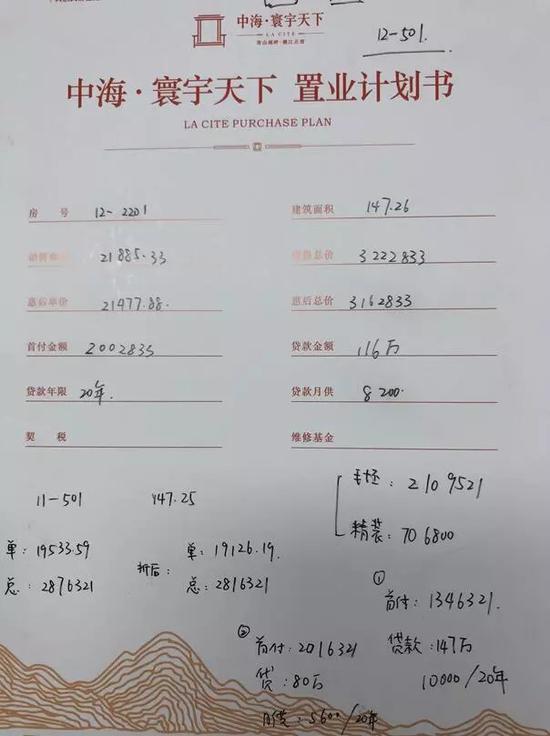 中海·寰宇天下
LA CITE
12-501.
中海·寰宇天下 置业计划书
LA CITE PURCHASE PLAN
房 号 12-2201 建筑面积 147.26
21885.33 总价 3222833
惠后单价 21477.88. 惠后总价 3162833
首付金额 2002835 贷款金额 116万
贷款年限 20年. 贷款月供 8200.
契 税 维修基金
毛坯: 2109521
11-501 147.25
精装: 706800
单: 19533.59 折后: 单: 19126.19.
总: 2876321 总: 2816321
① 首付: 1346321.
贷款: 147万
10000/20年
② 首付: 2016321
贷: 80万
月供: 5600/20年